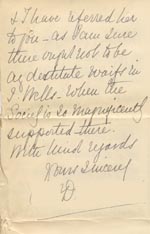 & I have referred her
to you - as I am sure
there ought not to be
any destitute waifs in
T Wells - when the
Society is so magnificently
supported there.
With kind regards
Yours sincerely
D.